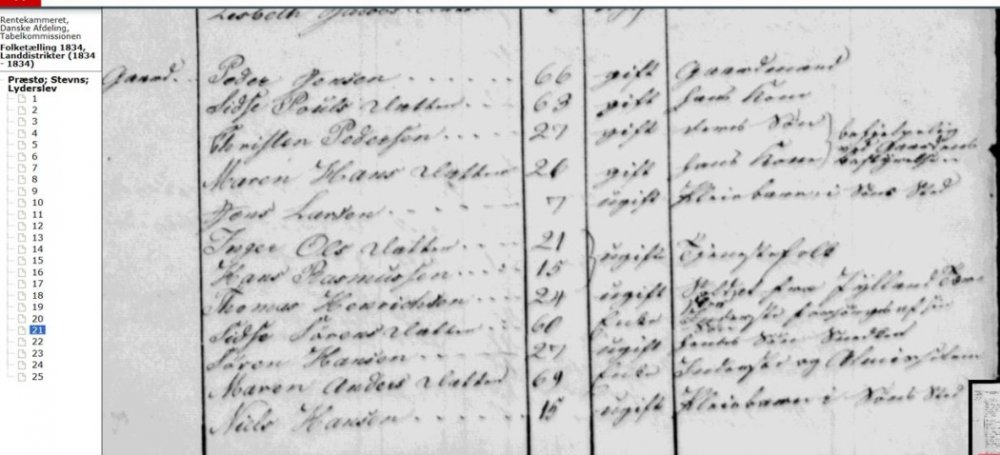 Rentekammeret,
Danske Afdeling,
Tabelkommissionen
Folketælling 1834,
Landdistrikter (1834
- 1834)
Præstø; Stevns;
Lyderslev
1
2
3
4
5
6
7
8
9
10
11
12
13
14
15
16
17
18
19
20
21
22
23
24
25
Lisbeth Jacobs Datter
Gaard. Peder Jensen 66 gift Gaardmand
Sidse Pouls Datter 63 gift hans Kone
Christen Pedersen 27 gift deres Søn behjelpelig
ved Gaardens
bestyrelsen
Maren Hans Datter 26 gift hans Kone
Jens Larsen 7 ugift Pleiebarn i Søns Sted
Inger Ols Datter 21
ugift Tjenestefolk
Hans Rasmussen 15
Thomas Henrichsen 24 ugift Soldat fra Jylland
Sidse Sørens Datter 60 Enke Inderste forsørges af sin
Søren Hansen 27 ugift hendes Søn Snedker
Maren Anders Datter 69 Enke Inderste og Almisselem
Niels Hansen 15 ugift Pleiebarn i Søns Sted